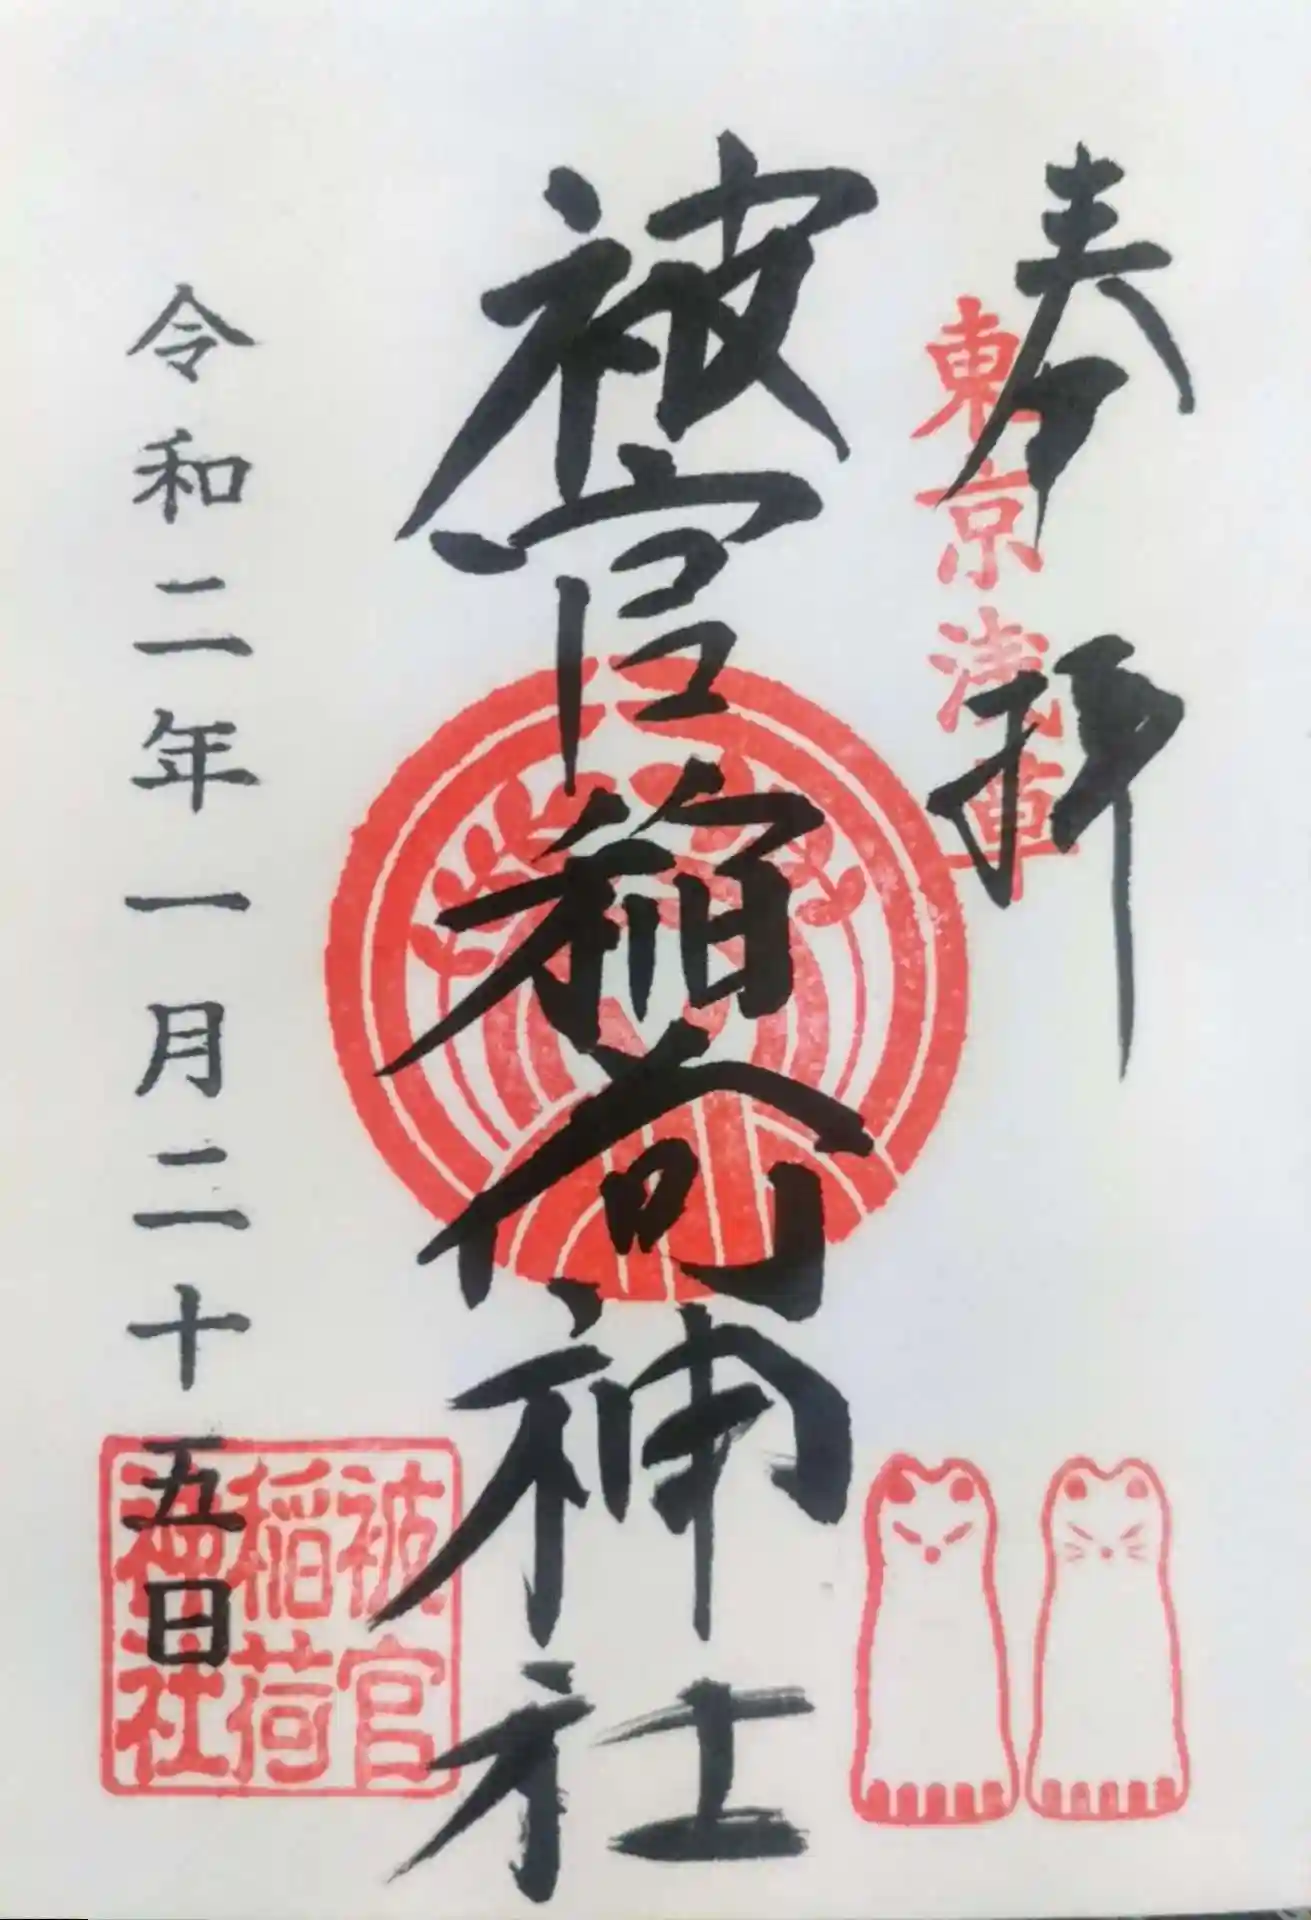 奉拝
東京浅草
被官稲荷神社
令和二年一月二十五日
被官
稲荷
神社